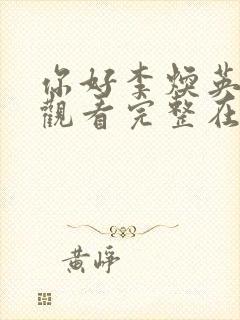 你好李焕英
觀看完整在
黄崢